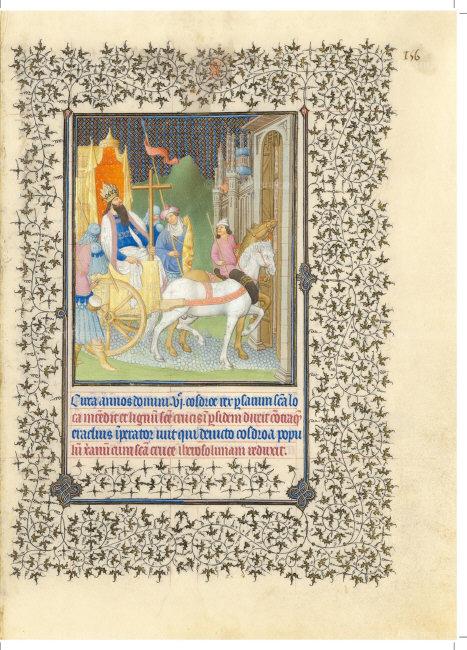 156
Circa annos domini .vj. cosdroe rex psarum scā lo
ca incēdit et lignum scē crucis ī psidem duxit cōtra quē
eraclius īperator iuit qui deuicto cosdroa popu
lū xanū cum scā cruce iherosolimam reduxit.